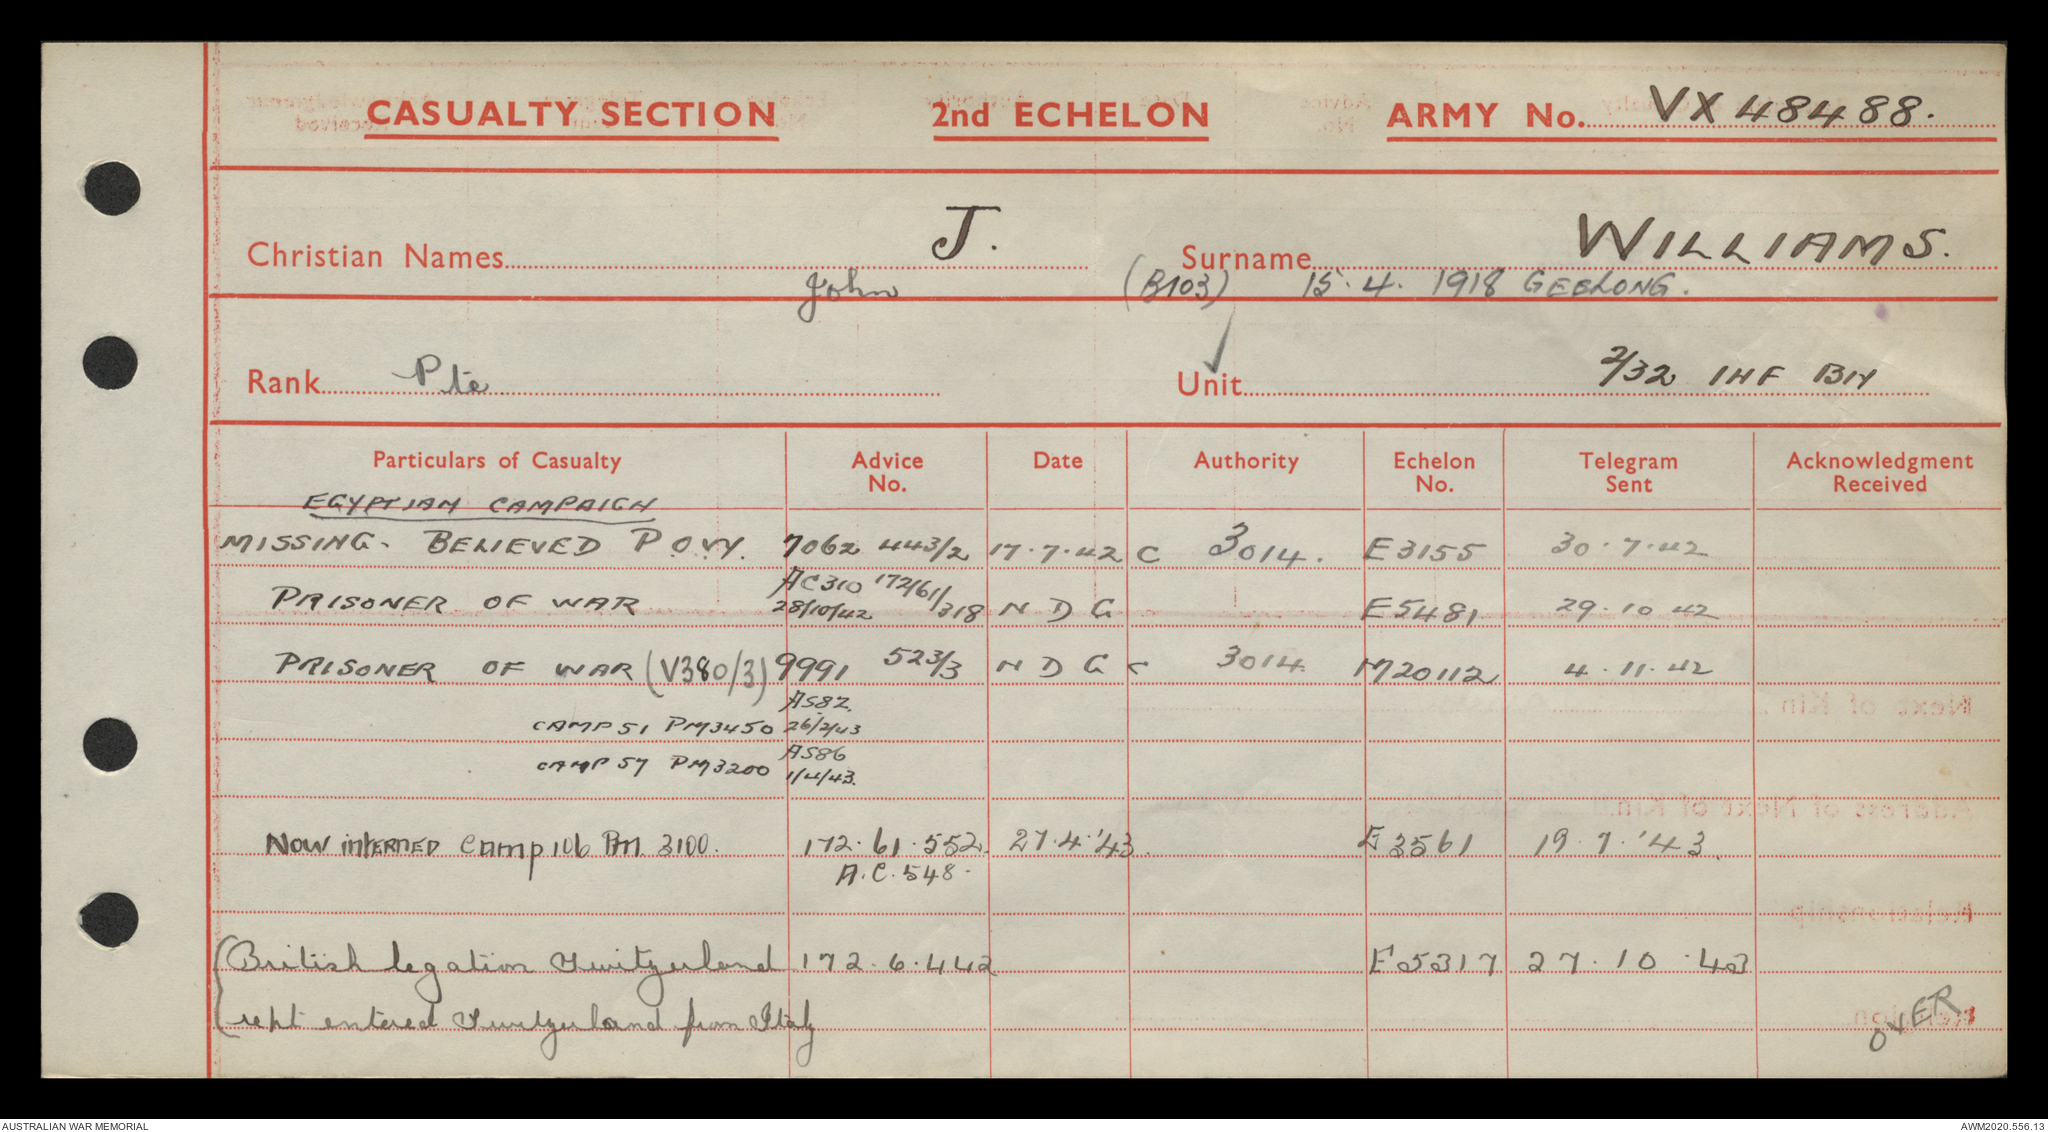 CASUALTY SECTION 2nd ECHELON ARMY No. VX 48488.
Christian Names J. Surname WILLIAMS.
John (B103) 15.4.1918 GEELONG.
Rank Pte Unit 2/32 INF BN
Particulars of Casualty Advice No. Date Authority Echelon No. Telegram Sent Acknowledgment Received
EGYPTIAN CAMPAIGN
MISSING. BELIEVED P.O.W. 7062 443/2 17.7.42 C 3014. E3155 30.7.42
AC310 172/61/318
PRISONER OF WAR 28/10/42 N D G E5481 29.10.42
PRISONER OF WAR (V380/3) 9991 523/3 N D G C 3014 M20112 4.11.42
AS82.
CAMP 51 PM3450 26/2/43
AS86
CAMP 57 PM3200 1/4/43.
Now interned Camp 106 P.M. 3100. 172.61.552. 27.4.'43. E3561 19.7.'43.
A.C.548.
(British legation Switzerland 172.6.442 E5317 27.10.43
(rept entered Switzerland from Italy
OVER
AUSTRALIAN WAR MEMORIAL AWM2020.556.13